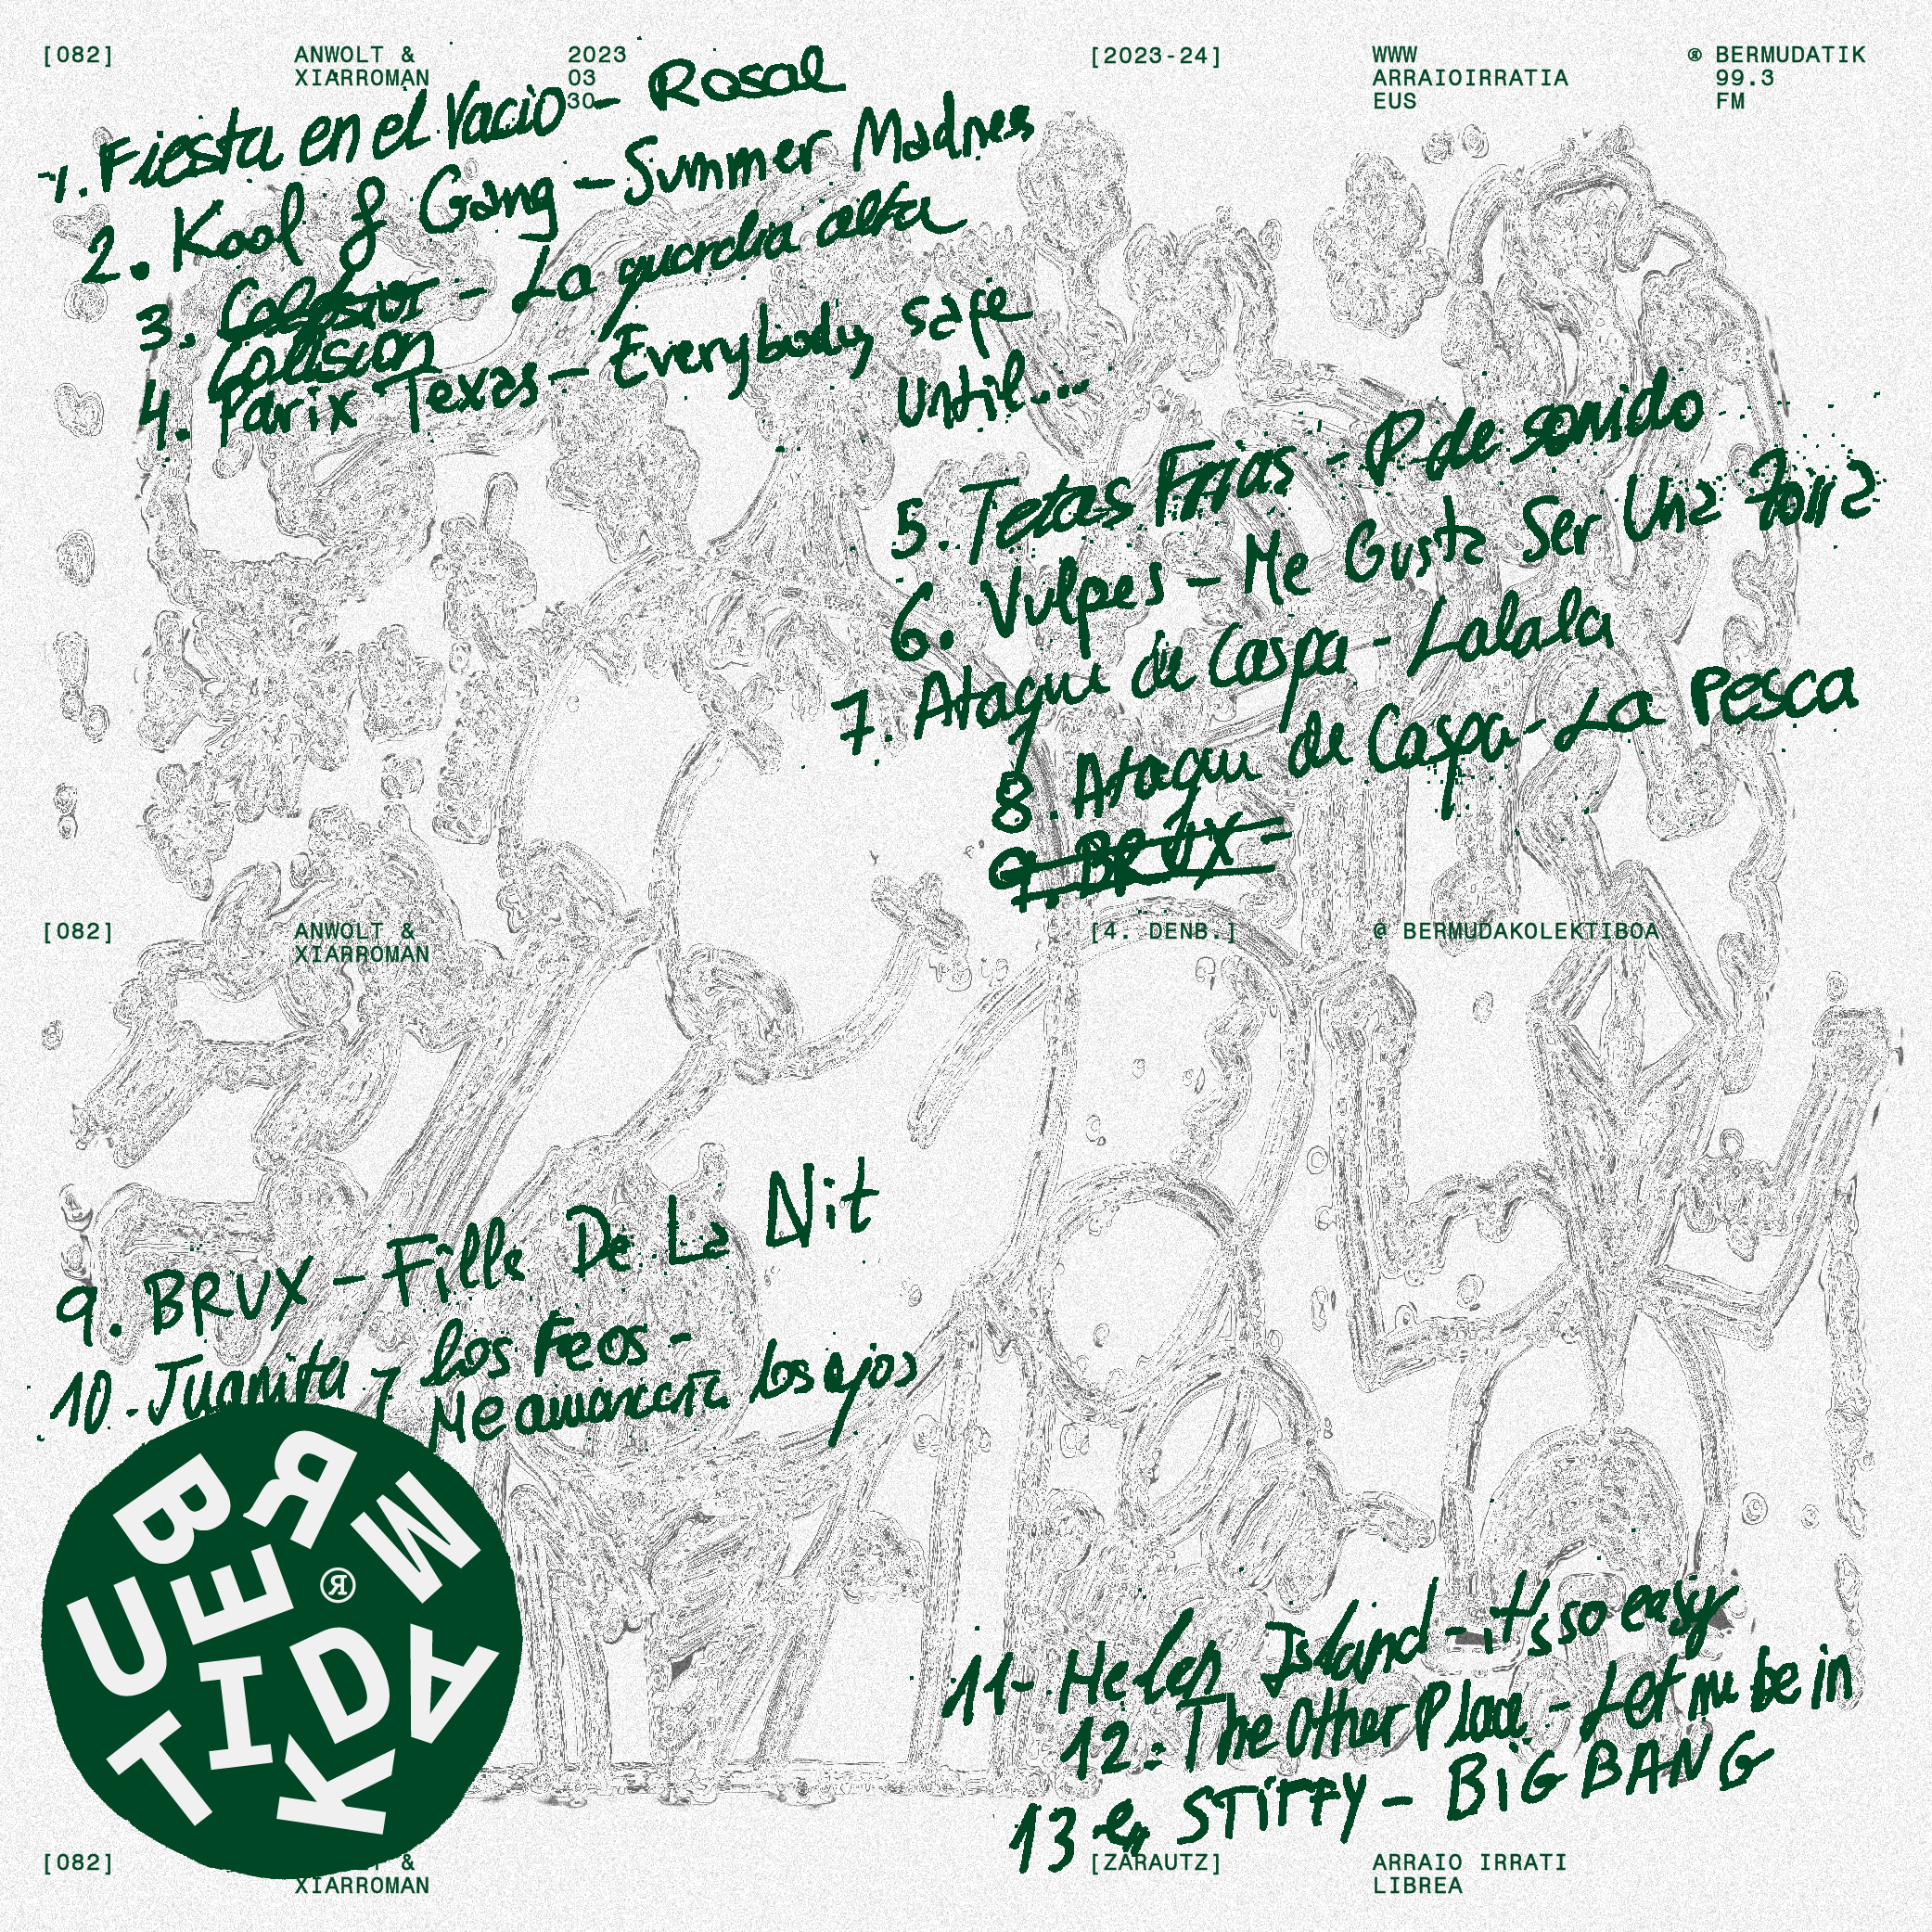 [082]
ANWOLT &
XIARROMAN
2023
03
30
[2023-24]
WWW
ARRAIOIRRATIA
EUS
® BERMUDATIK
99.3
FM
1. Fiesta en el Vacio - Rosal
2. Kool & Gang - Summer Madnes
3. - La guardia alta
Colision
4. Parix Texas - Everybody safe
Until....
5. Tetas Frias - P de sonido
6. Vulpes - Me Gusta Ser Una Zorra
7. Ataque de Caspa - Lalala
8. Ataque de Caspa - La Pesca
9. BRUX -
[082]
ANWOLT &
XIARROMAN
[4. DENB.]
@ BERMUDAKOLEKTIBOA
9. BRUX - Fille De La Nit
10. Juanita y los Feos -
Me arrancaría los ojos
BERMUDATIK
®
11- Helen Island - it's so easy
12. The Other Place - Let me be in
13 STiFFY - BiG BANG
[082]
&
XIARROMAN
[ZARAUTZ]
ARRAIO IRRATI
LIBREA